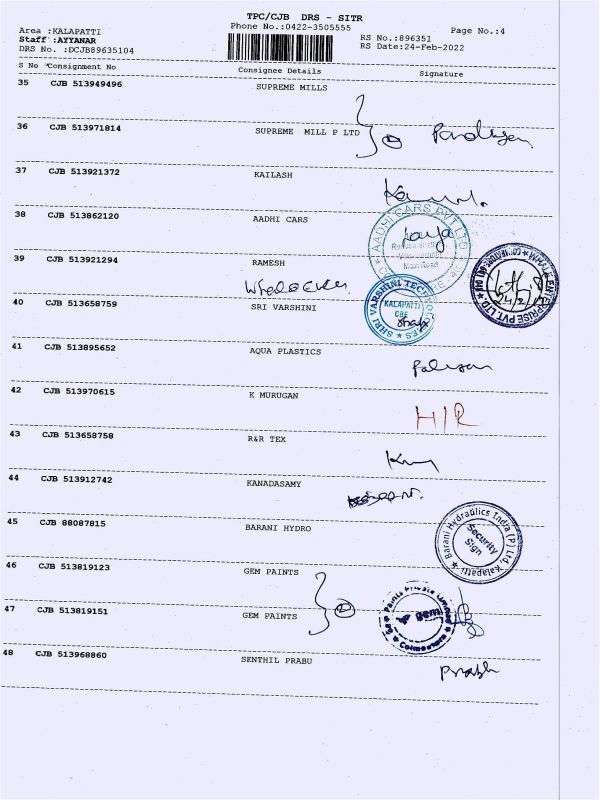 TPC/CJB DRS - SITR
Area :KALAPATTI
Phone No.:0422-3505555
Page No.:4
Staff :AYYANAR
RS No.:896351
DRS No. :DCJB89635104
RS Date:24-Feb-2022
S No Consignment No Consignee Details Signature
35 CJB 513949496 SUPREME MILLS
36 CJB 513971814 SUPREME MILL P LTD
37 CJB 513921372 KAILASH
38 CJB 513862120 AADHI CARS
AADHI CARS PVT LTD
Main Road
39 CJB 513921294 RAMESH
40 CJB 513658759 SRI VARSHINI
SHRI VARSHINI TECHNOLOGIES
KALAPATTI
CBE
41 CJB 513895652 AQUA PLASTICS
42 CJB 513970615 K MURUGAN
H/R
43 CJB 513658758 R&R TEX
44 CJB 513912742 KANADASAMY
45 CJB 88087815 BARANI HYDRO
Barani Hydraulics India (P) Ltd, Kalapatti
Security
Sign
46 CJB 513819123 GEM PAINTS
47 CJB 513819151 GEM PAINTS
2
gem
Coimbatore
48 CJB 513968860 SENTHIL PRABU
Prabh